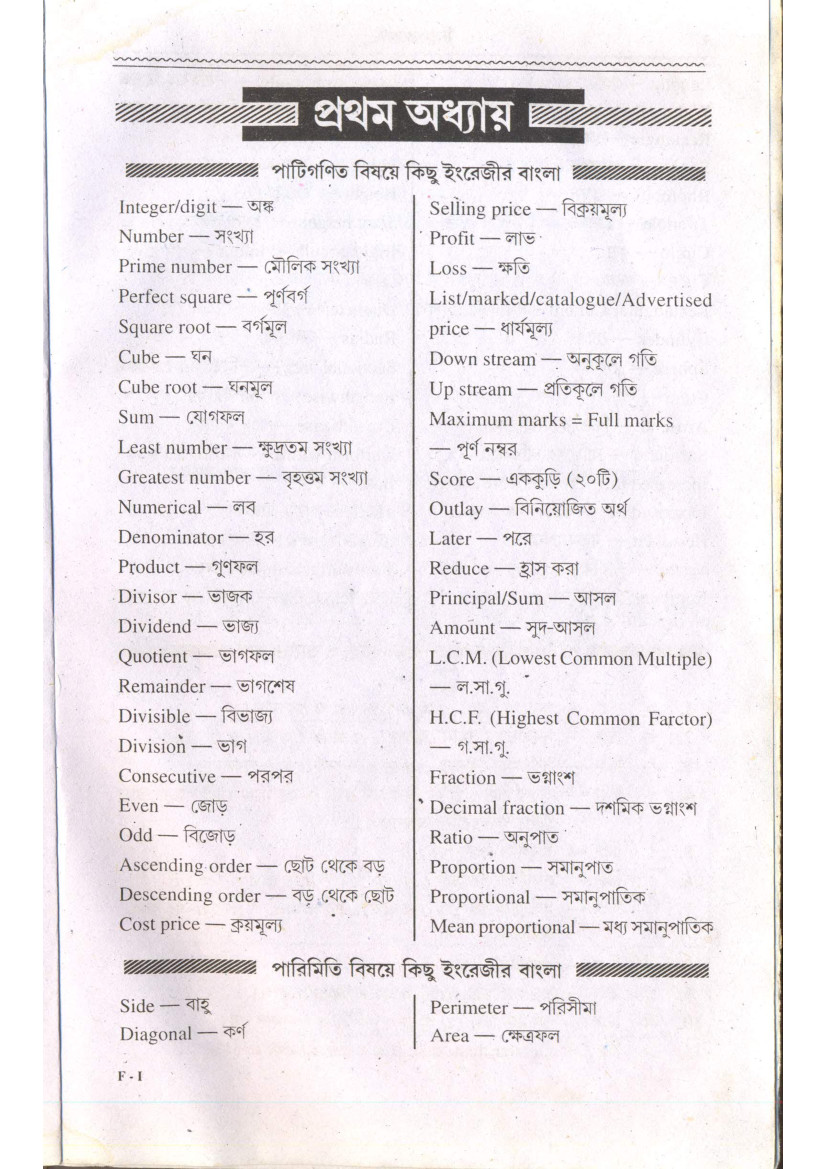 প্রথম অধ্যায়
পাটিগণিত বিষয়ে কিছু ইংরেজীর বাংলা
Integer/digit — অঙ্ক
Number — সংখ্যা
Prime number — মৌলিক সংখ্যা
Perfect square — পূর্ণবর্গ
Square root — বর্গমূল
Cube — ঘন
Cube root — ঘনমূল
Sum — যোগফল
Least number — ক্ষুদ্রতম সংখ্যা
Greatest number — বৃহত্তম সংখ্যা
Numerical — লব
Denominator — হর
Product — গুণফল
Divisor — ভাজক
Dividend — ভাজ্য
Quotient — ভাগফল
Remainder — ভাগশেষ
Divisible — বিভাজ্য
Division — ভাগ
Consecutive — পরপর
Even — জোড়
Odd — বিজোড়
Ascending order — ছোট থেকে বড়
Descending order — বড় থেকে ছোট
Cost price — ক্রয়মূল্য
Selling price — বিক্রয়মূল্য
Profit — লাভ
Loss — ক্ষতি
List/marked/catalogue/Advertised
price — ধার্যমূল্য
Down stream — অনুকূলে গতি
Up stream — প্রতিকূলে গতি
Maximum marks = Full marks
— পূর্ণ নম্বর
Score — এককুড়ি (২০টি)
Outlay — বিনিয়োজিত অর্থ
Later — পরে
Reduce — হ্রাস করা
Principal/Sum — আসল
Amount — সুদ-আসল
L.C.M. (Lowest Common Multiple)
— ল.সা.গু.
H.C.F. (Highest Common Farctor)
— গ.সা.গু.
Fraction — ভগ্নাংশ
Decimal fraction — দশমিক ভগ্নাংশ
Ratio — অনুপাত
Proportion — সমানুপাত
Proportional — সমানুপাতিক
Mean proportional — মধ্য সমানুপাতিক
পারিমিতি বিষয়ে কিছু ইংরেজীর বাংলা
Side — বাহু
Diagonal — কর্ণ
Perimeter — পরিসীমা
Area — ক্ষেত্রফল
F - I